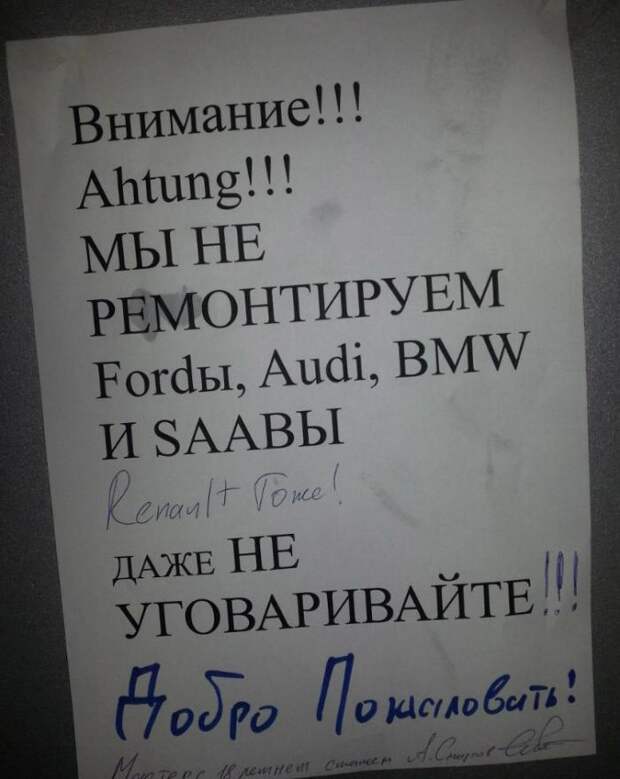 Внимание!!!
Ahtung!!!
МЫ НЕ
РЕМОНТИРУЕМ
Fordы, Audi, BMW
И SAABЫ
Renault Тоже!
ДАЖЕ НЕ
УГОВАРИВАЙТЕ!!!
Добро Пожаловать!
Мастер с 18 летнем стажем А.